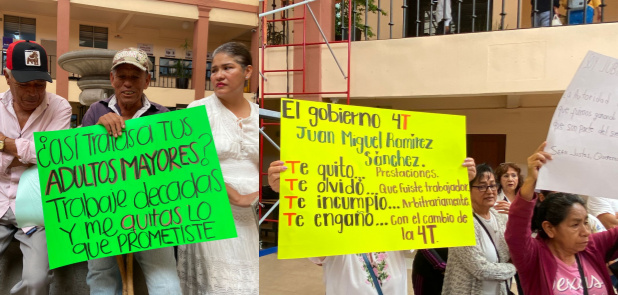 ¿Así TRATAS A TUS
ADULTOS MAYORES?
Trabaje decadas
Y me quitas LO
QUE PROMETISTE
El gobierno 4T
Juan Miguel Ramirez
Sánchez.
Te quito... Prestaciones.
Te olvidó... Que Fuiste trabajador.
Te incumplo... Arbitrariamente
Te engaño... Con el cambio de
la 4T.